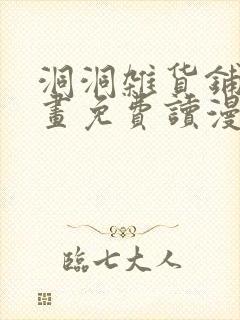 洞洞雜貨鋪
畫免費讀漫
臨七大人